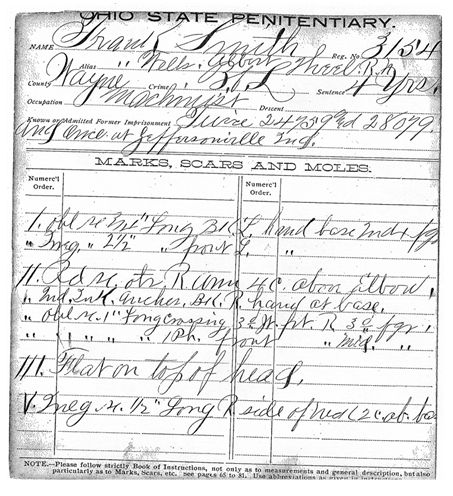 OHIO STATE PENITENTIARY.
NAME Frank Smith Reg. No. 3154
Alias " Wells, Albert
County Wayne Crime B. & L. Sentence 4 Yrs.
Occupation Machinist Descent
Known or Admitted Former Imprisonment Twice 24759 and 28079.
and Once at Jeffersonville Ind.
MARKS, SCARS AND MOLES.
Numeric'l Order. Numeric'l Order.
I. obl sc 3/4" Long Bk L. hand base 2nd & fgr
" Irreg. " 2 1/2" " front L. "
II. Rd sc otr R arm 4c. above Elbow,
" Ind. Ink anchor, Bk. R hand at base.
" obl sc. 1" Long crossing 3d Jt. pt. R 3d fgr,
" " " " " 1 Ph. front " Mid. "
III. Flat on top of head,
V. Irreg sc. 1/2" Long R side of head 2c. ab. ba.
NOTE.—Please follow strictly Book of Instructions, not only as to measurements and general description, but also
particularly as to Marks, Scars, etc. see pages 65 to 81. Use abbreviations as given in